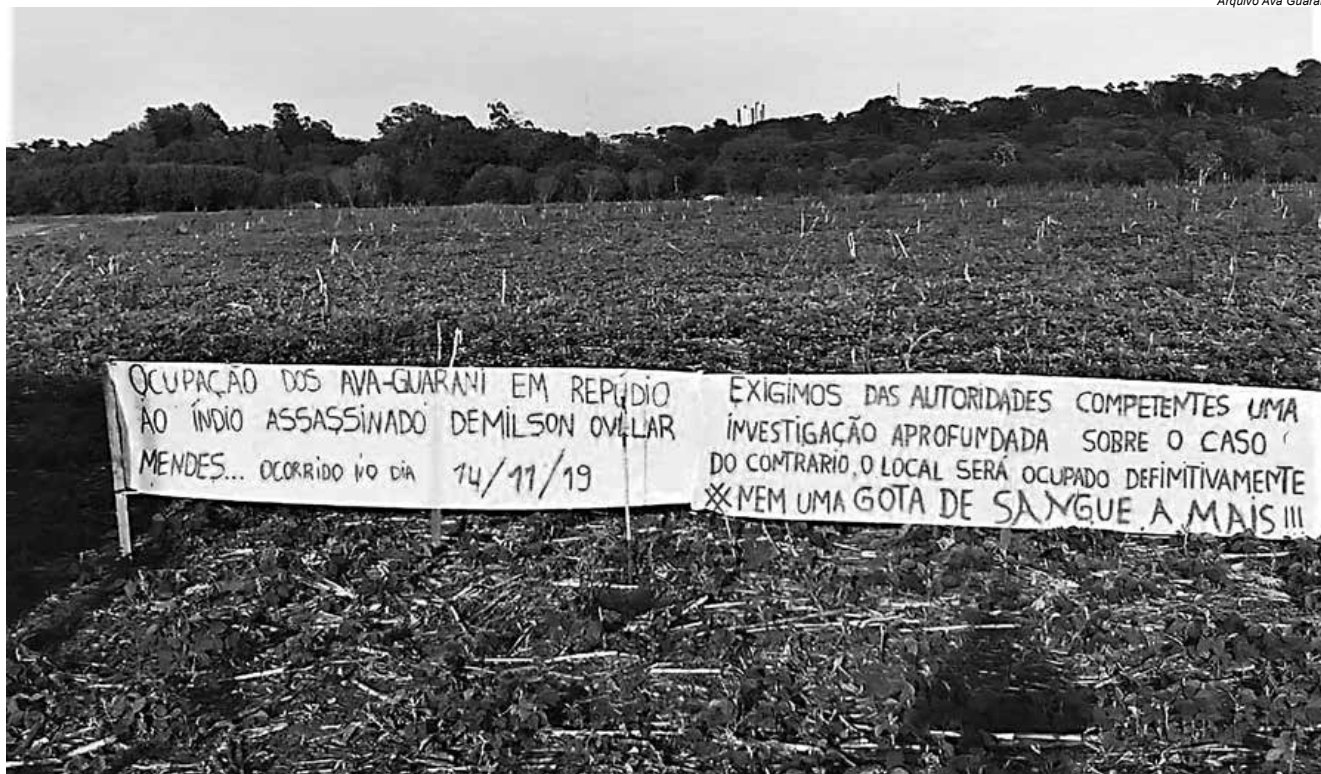 Arquivo Ava Guarani
OCUPAÇÃO DOS AVA-GUARANI EM REPÚDIO
AO ÍNDIO ASSASSINADO DEMILSON OVELAR
MENDES... OCORRIDO NO DIA 14/11/19
EXIGIMOS DAS AUTORIDADES COMPETENTES UMA
INVESTIGAÇÃO APROFUNDADA SOBRE O CASO
DO CONTRARIO, O LOCAL SERÁ OCUPADO DEFIMITIVAMENTE
NEM UMA GOTA DE SANGUE A MAIS!!!